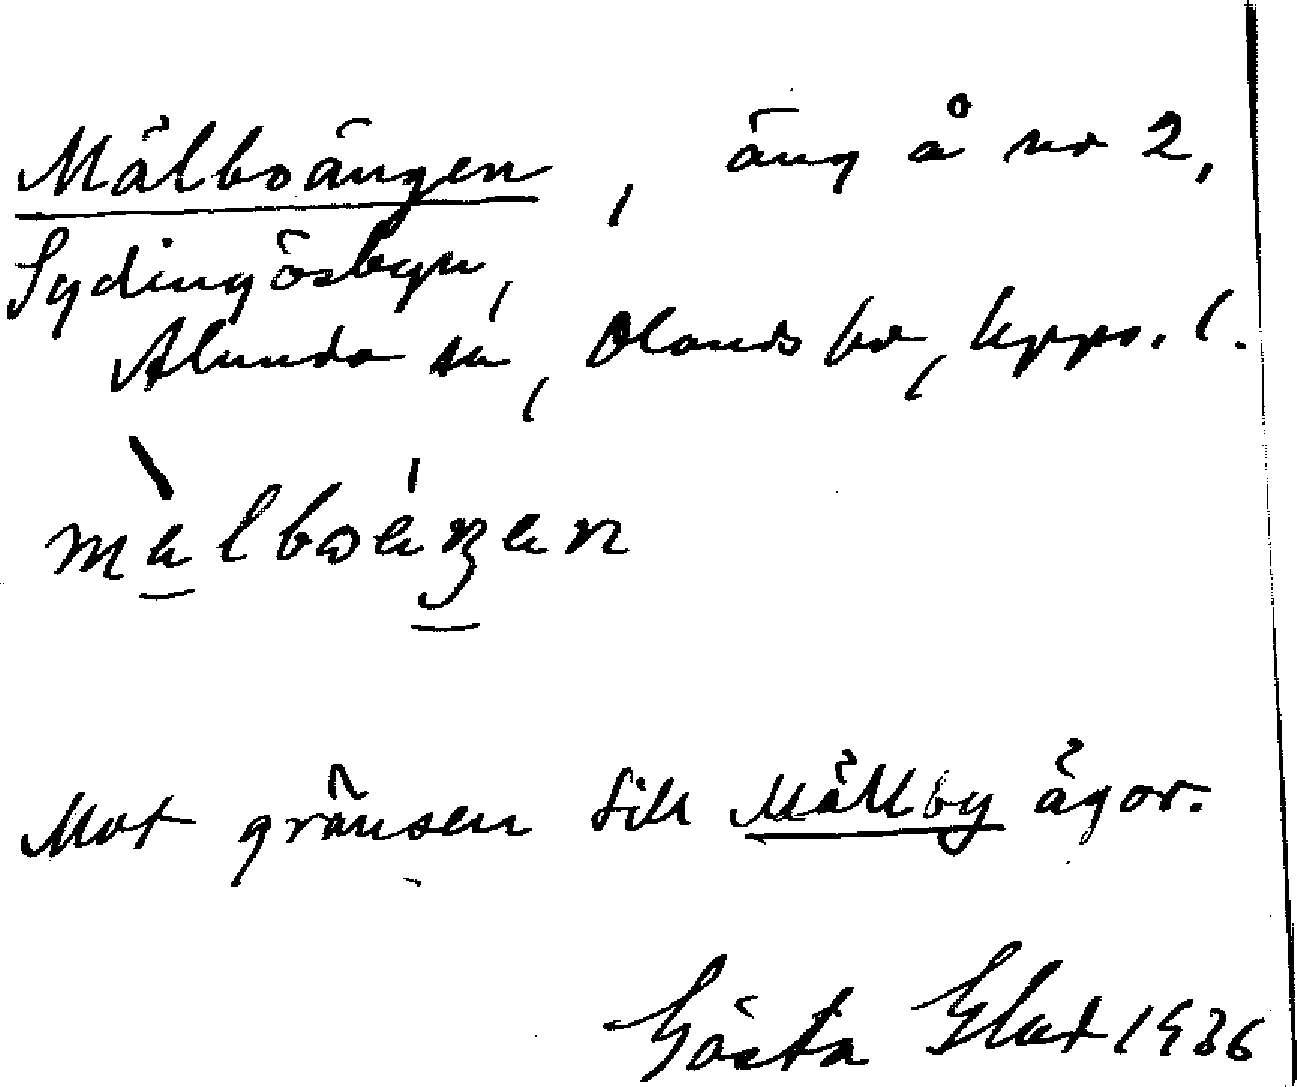 Mälboängen, äng å nr 2,
Sydingösbyn,
Alunda sn, Olands hd, Upps. l.
mälboäŋen
Mot gränsen till Mällby ägor.
Gösta 1936